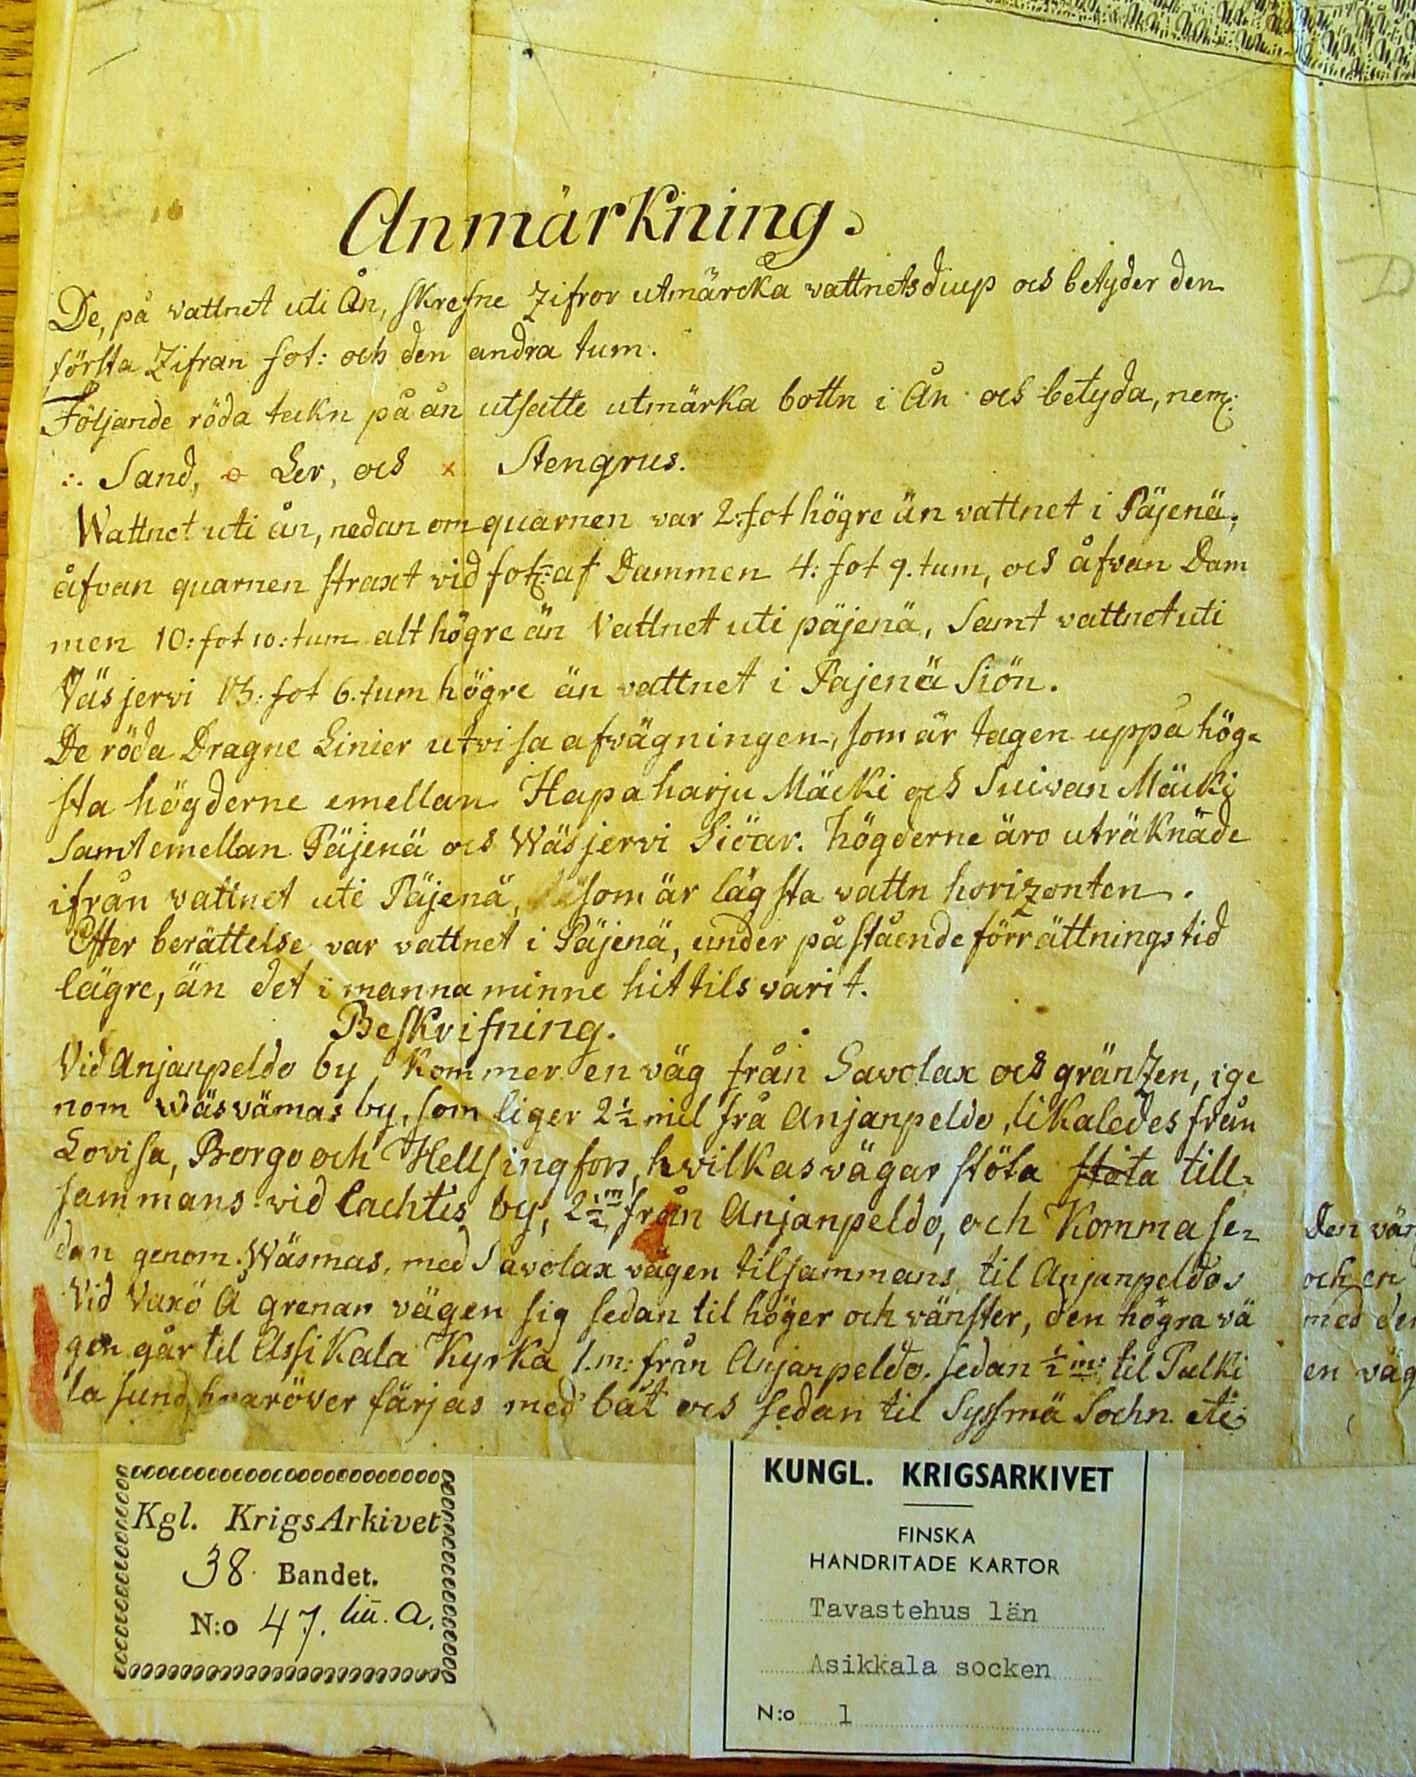 Anmärkning.
De, på vattnet uti Ån, skrefne Zifror utmärcka vattnets diup och betyder den
första Zifran fot: och den andra tum.
Följande röda teckn på ån utsatte utmärka bottn i Ån och betyda, nem:
∴ Sand, o Ler, och x Stengrus.
Wattnet uti ån, nedan om quarnen var 2: fot högre än vattnet i Päjenä,
åfvan quarnen straxt vid fot: af Dammen 4: fot 9. tum, och åfvan Dam
men 10: fot 10: tum alt högre än Vattnet uti päjenä, Samt vattnet uti
Väsjervi 13: fot 6. tum högre än vattnet i Päjenä Siön.
De röda Dragne Linier utvisa afvägningen, som är tagen uppå hög-
sta högderne emellan Hapaharju Mäcki och Suivan Mäcki
Samt emellan Päjenä och Wäsjervi Siöar. högderne äro uträknade
ifrån vattnet uti Päjenä, som är lägsta vattn horizonten.
Efter berättelse var vattnet i Päjenä, under påstående förrättnings tid
lägre, än det i manna minne hittils varit.
Beskrifning.
Vid Anjanpeldo by, kommer en väg från Savolax och gränzen, ige
nom Wäsvämas by, som liger 2½ mil frå Anjanpeldo, likaledes från
Lovisa, Borgo och Hellsingfors, hvilkas vägar stöta stöta till-
sammans vid Lachtis by, 2½ m från Anjanpeldo, och Komma se-
dan genom Wäsmas, med Savolax vägen tilsammans til Anjanpeldo.
Vid Varö Å grenar vägen sig sedan til höger och vänster, den högra vä
gen går til Assikala Kyrka 1. m: från Anjanpeldo. sedan ½ m: til Pulki
la sund, hvaröver färjas med båt och sedan til Syssmä Sochn etc
Den vän
och en
med den
en väg
D
Kgl. KrigsArkivet
38 Bandet.
N:o 47. litt. a.
KUNGL. KRIGSARKIVET
FINSKA
HANDRITADE KARTOR
Tavastehus län
Asikkala socken
N:o 1